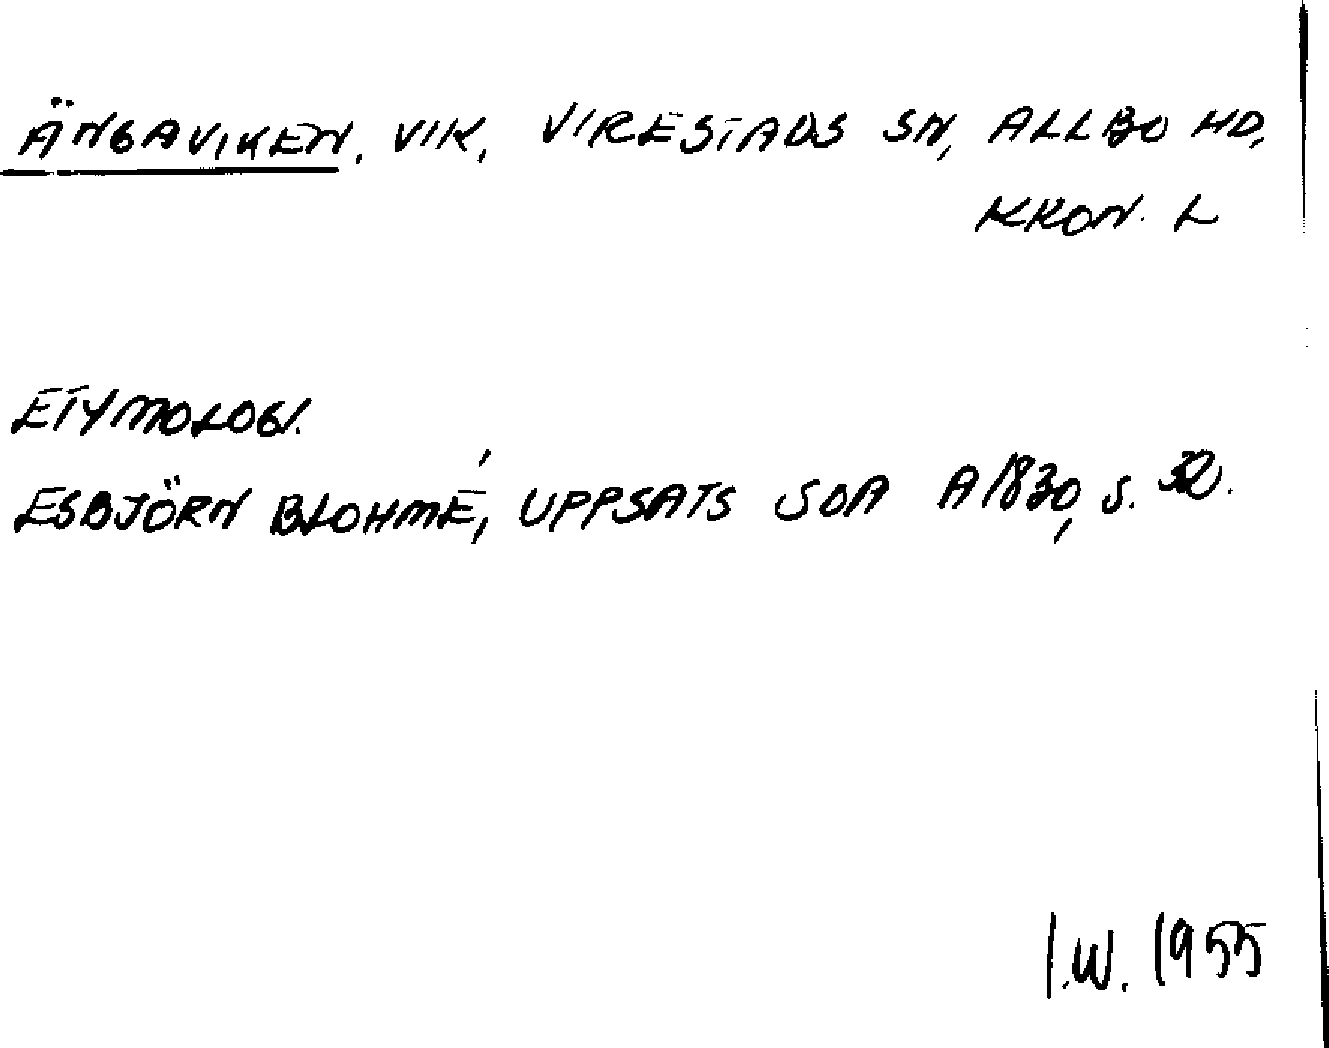 ÄNGAVIKEN, VIK, VIRESTADS SN, ALLBO HD,
KRON. L
ETYMOLOGI.
ESBJÖRN BLOHMÉ, UPPSATS SOA A1830, S. 32.
I.W. 1955